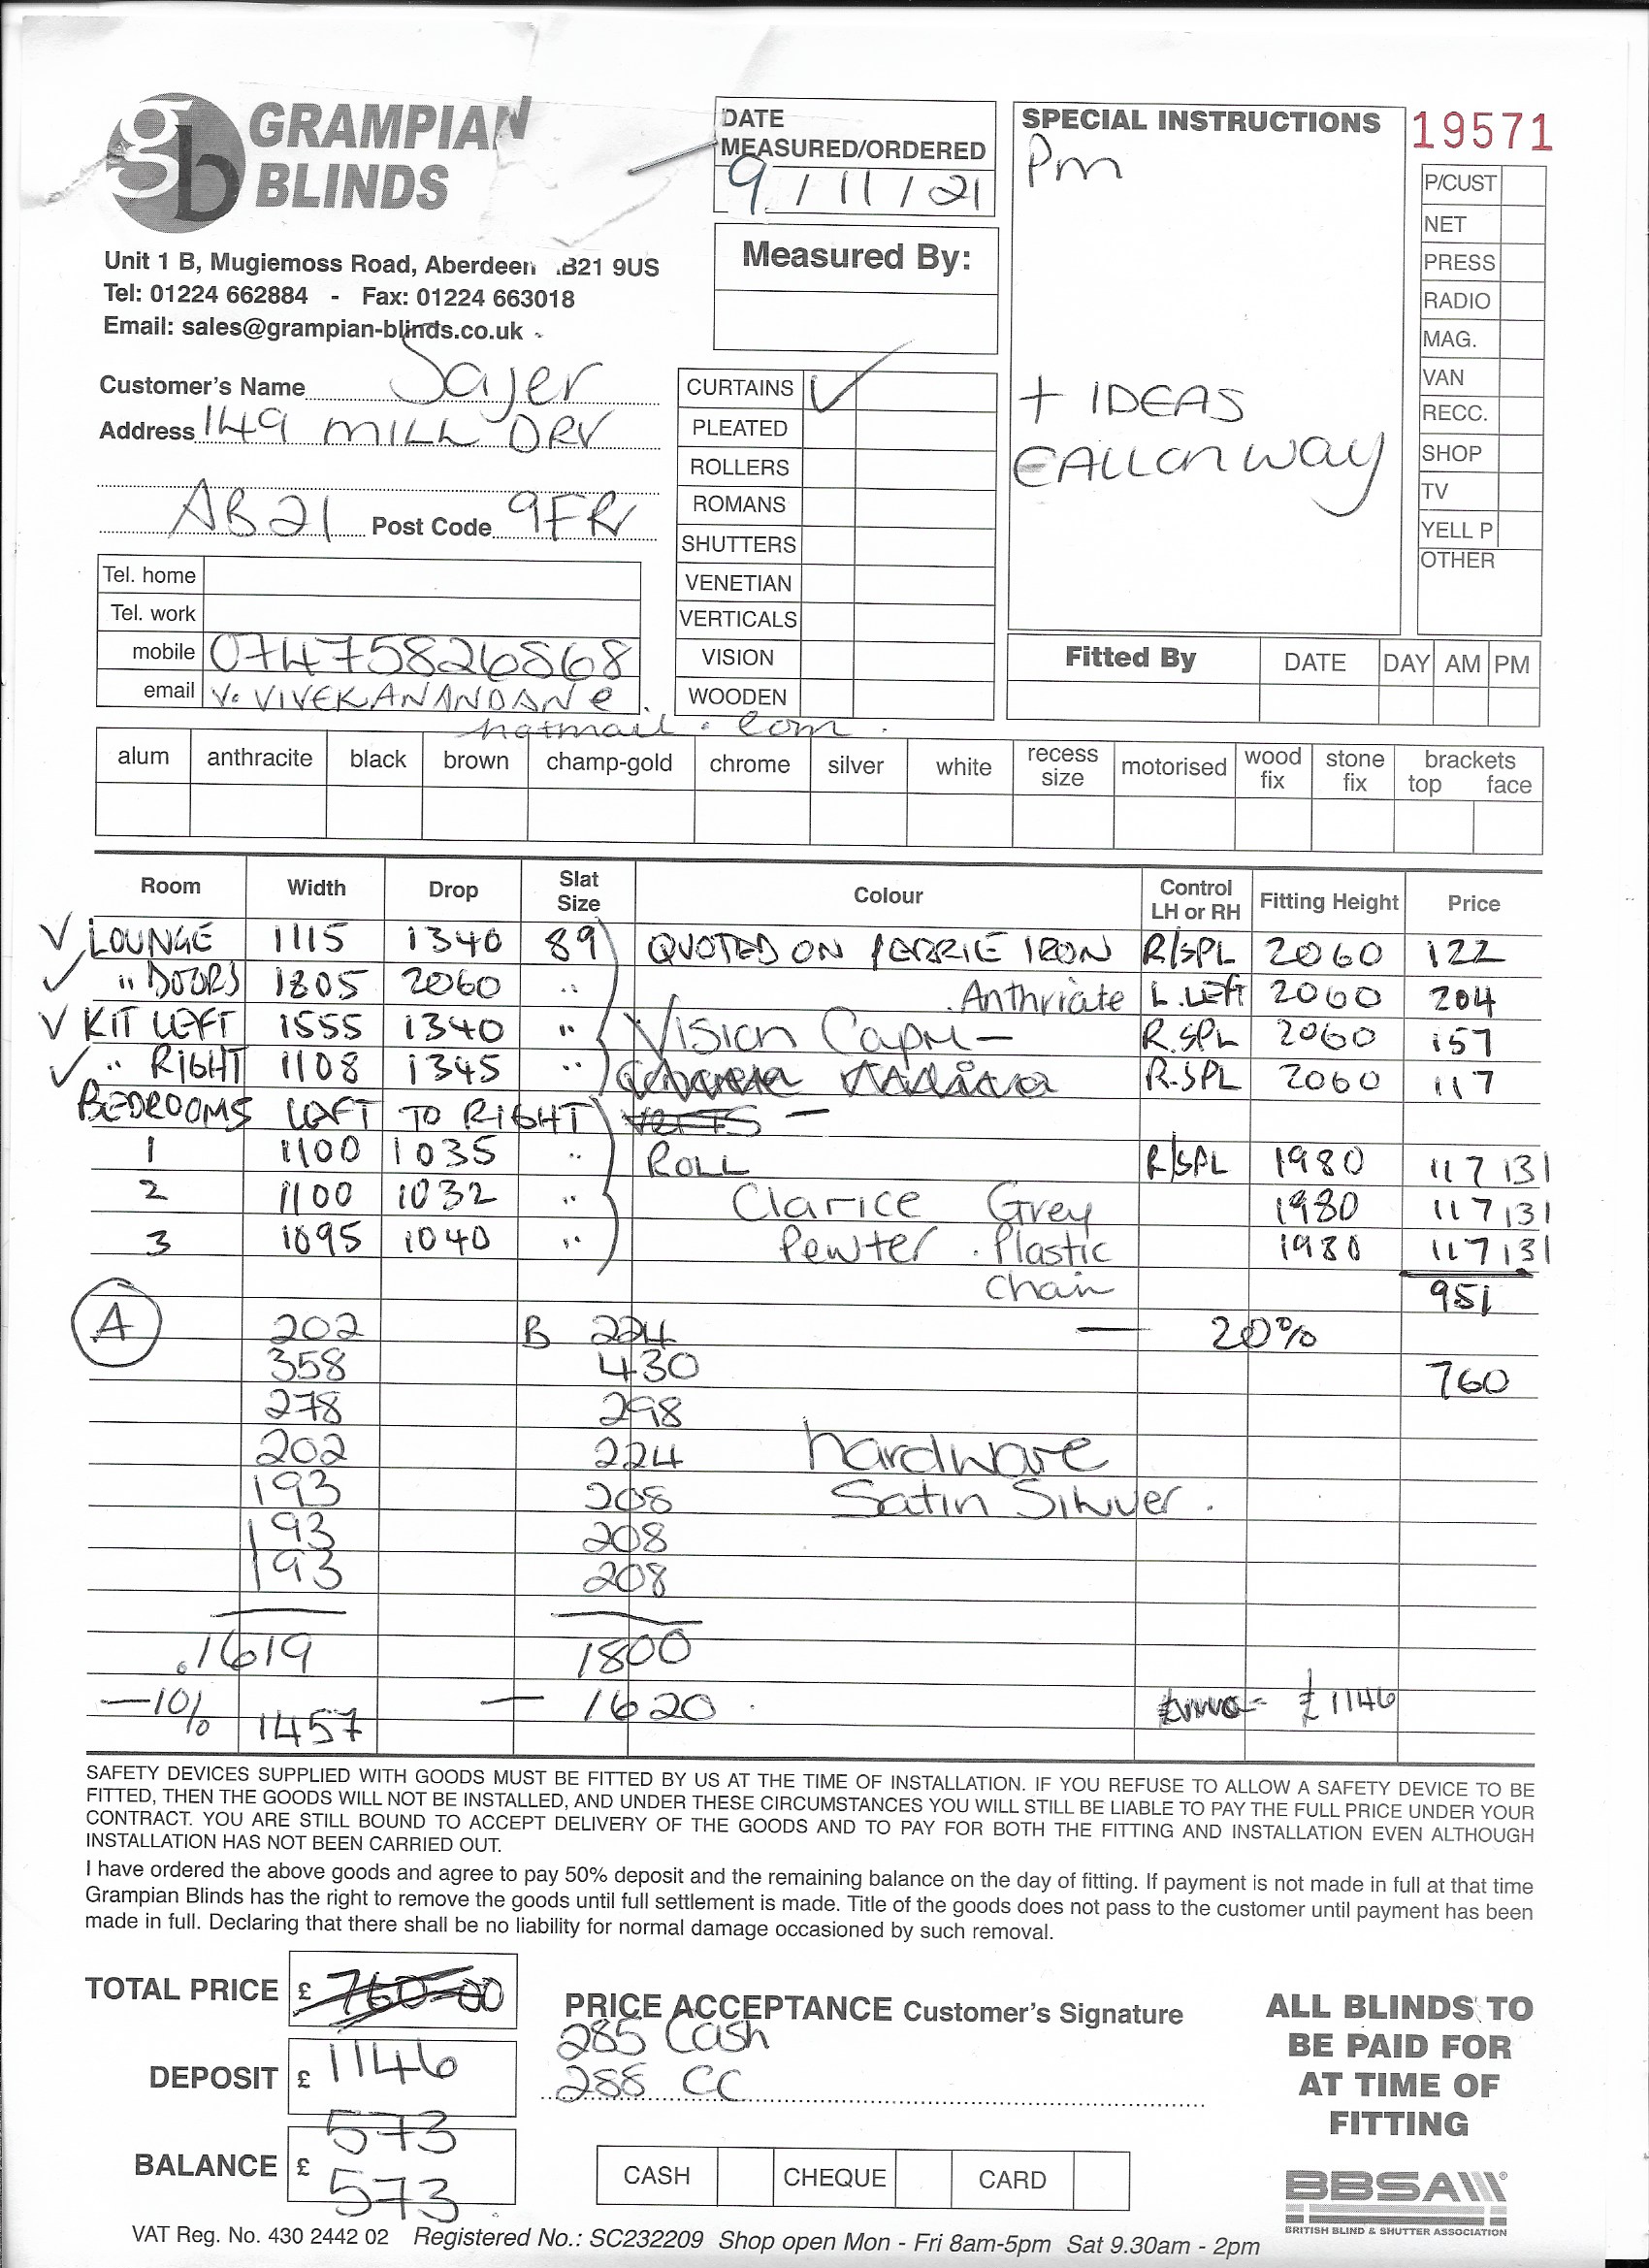 gb GRAMPIAN
BLINDS
Unit 1 B, Mugiemoss Road, Aberdeen AB21 9US
Tel: 01224 662884 - Fax: 01224 663018
Email: sales@grampian-blinds.co.uk
DATE
MEASURED/ORDERED
9 / 11 / 21
Measured By:
SPECIAL INSTRUCTIONS
Pm
+ IDEAS
19571
P/CUST
NET
PRESS
RADIO
MAG.
VAN
RECC.
SHOP
TV
YELL P
OTHER
Customer's Name Sajer
Address 149 MILL DRV
AB21 Post Code 9FR
Tel. home
Tel. work
mobile 07475826868
email V. VIVEKANANDAN @
hotmail . com .
CURTAINS ✓
PLEATED
ROLLERS
ROMANS
SHUTTERS
VENETIAN
VERTICALS
VISION
WOODEN
Fitted By DATE DAY AM PM
alum anthracite black brown champ-gold chrome silver white recess size motorised wood fix stone fix brackets top face
Room Width Drop Slat Size Colour Control LH or RH Fitting Height Price
✓ LOUNGE 1115 1340 89 QUOTED ON IRON R/SPL 2060 122
✓ " DOORS 1805 2060 " Anthriate L.LEFT 2060 204
✓ KIT LEFT 1555 1340 " Vision Capri - R.SPL 2060 157
✓ " RIGHT 1108 1345 " R.SPL 2060 117
BEDROOMS LEFT TO RIGHT VERTS -
1 1100 1035 " ROLL R/SPL 1980 117 131
2 1100 1032 " Clarice Grey 1980 117 131
3 1095 1040 " Pewter . Plastic 1980 117 131
chain 951
A 202 B 224 - 20%
358 430 760
278 298
202 224 hardware
193 208 Satin Silver .
193 208
193 208
1619 1800
-10% 1457 - 1620 £1146
SAFETY DEVICES SUPPLIED WITH GOODS MUST BE FITTED BY US AT THE TIME OF INSTALLATION. IF YOU REFUSE TO ALLOW A SAFETY DEVICE TO BE
FITTED, THEN THE GOODS WILL NOT BE INSTALLED, AND UNDER THESE CIRCUMSTANCES YOU WILL STILL BE LIABLE TO PAY THE FULL PRICE UNDER YOUR
CONTRACT. YOU ARE STILL BOUND TO ACCEPT DELIVERY OF THE GOODS AND TO PAY FOR BOTH THE FITTING AND INSTALLATION EVEN ALTHOUGH
INSTALLATION HAS NOT BEEN CARRIED OUT.
I have ordered the above goods and agree to pay 50% deposit and the remaining balance on the day of fitting. If payment is not made in full at that time
Grampian Blinds has the right to remove the goods until full settlement is made. Title of the goods does not pass to the customer until payment has been
made in full. Declaring that there shall be no liability for normal damage occasioned by such removal.
TOTAL PRICE £ 760-00
DEPOSIT £ 1146
573
BALANCE £ 573
PRICE ACCEPTANCE Customer's Signature
285 Cash
288 CC
CASH CHEQUE CARD
ALL BLINDS TO
BE PAID FOR
AT TIME OF
FITTING
BBSA
BRITISH BLIND & SHUTTER ASSOCIATION
VAT Reg. No. 430 2442 02 Registered No.: SC232209 Shop open Mon - Fri 8am-5pm Sat 9.30am - 2pm